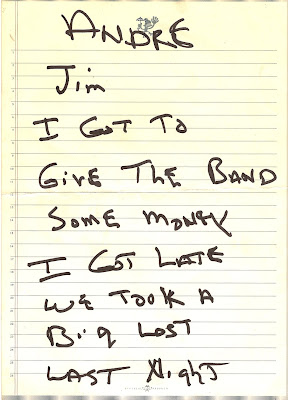 ANDRE
Jim
I GOT TO
GIVE THE BAND
SOME MONEY
I GOT LATE
WE TOOK A
BIG LOST
LAST NIGHT